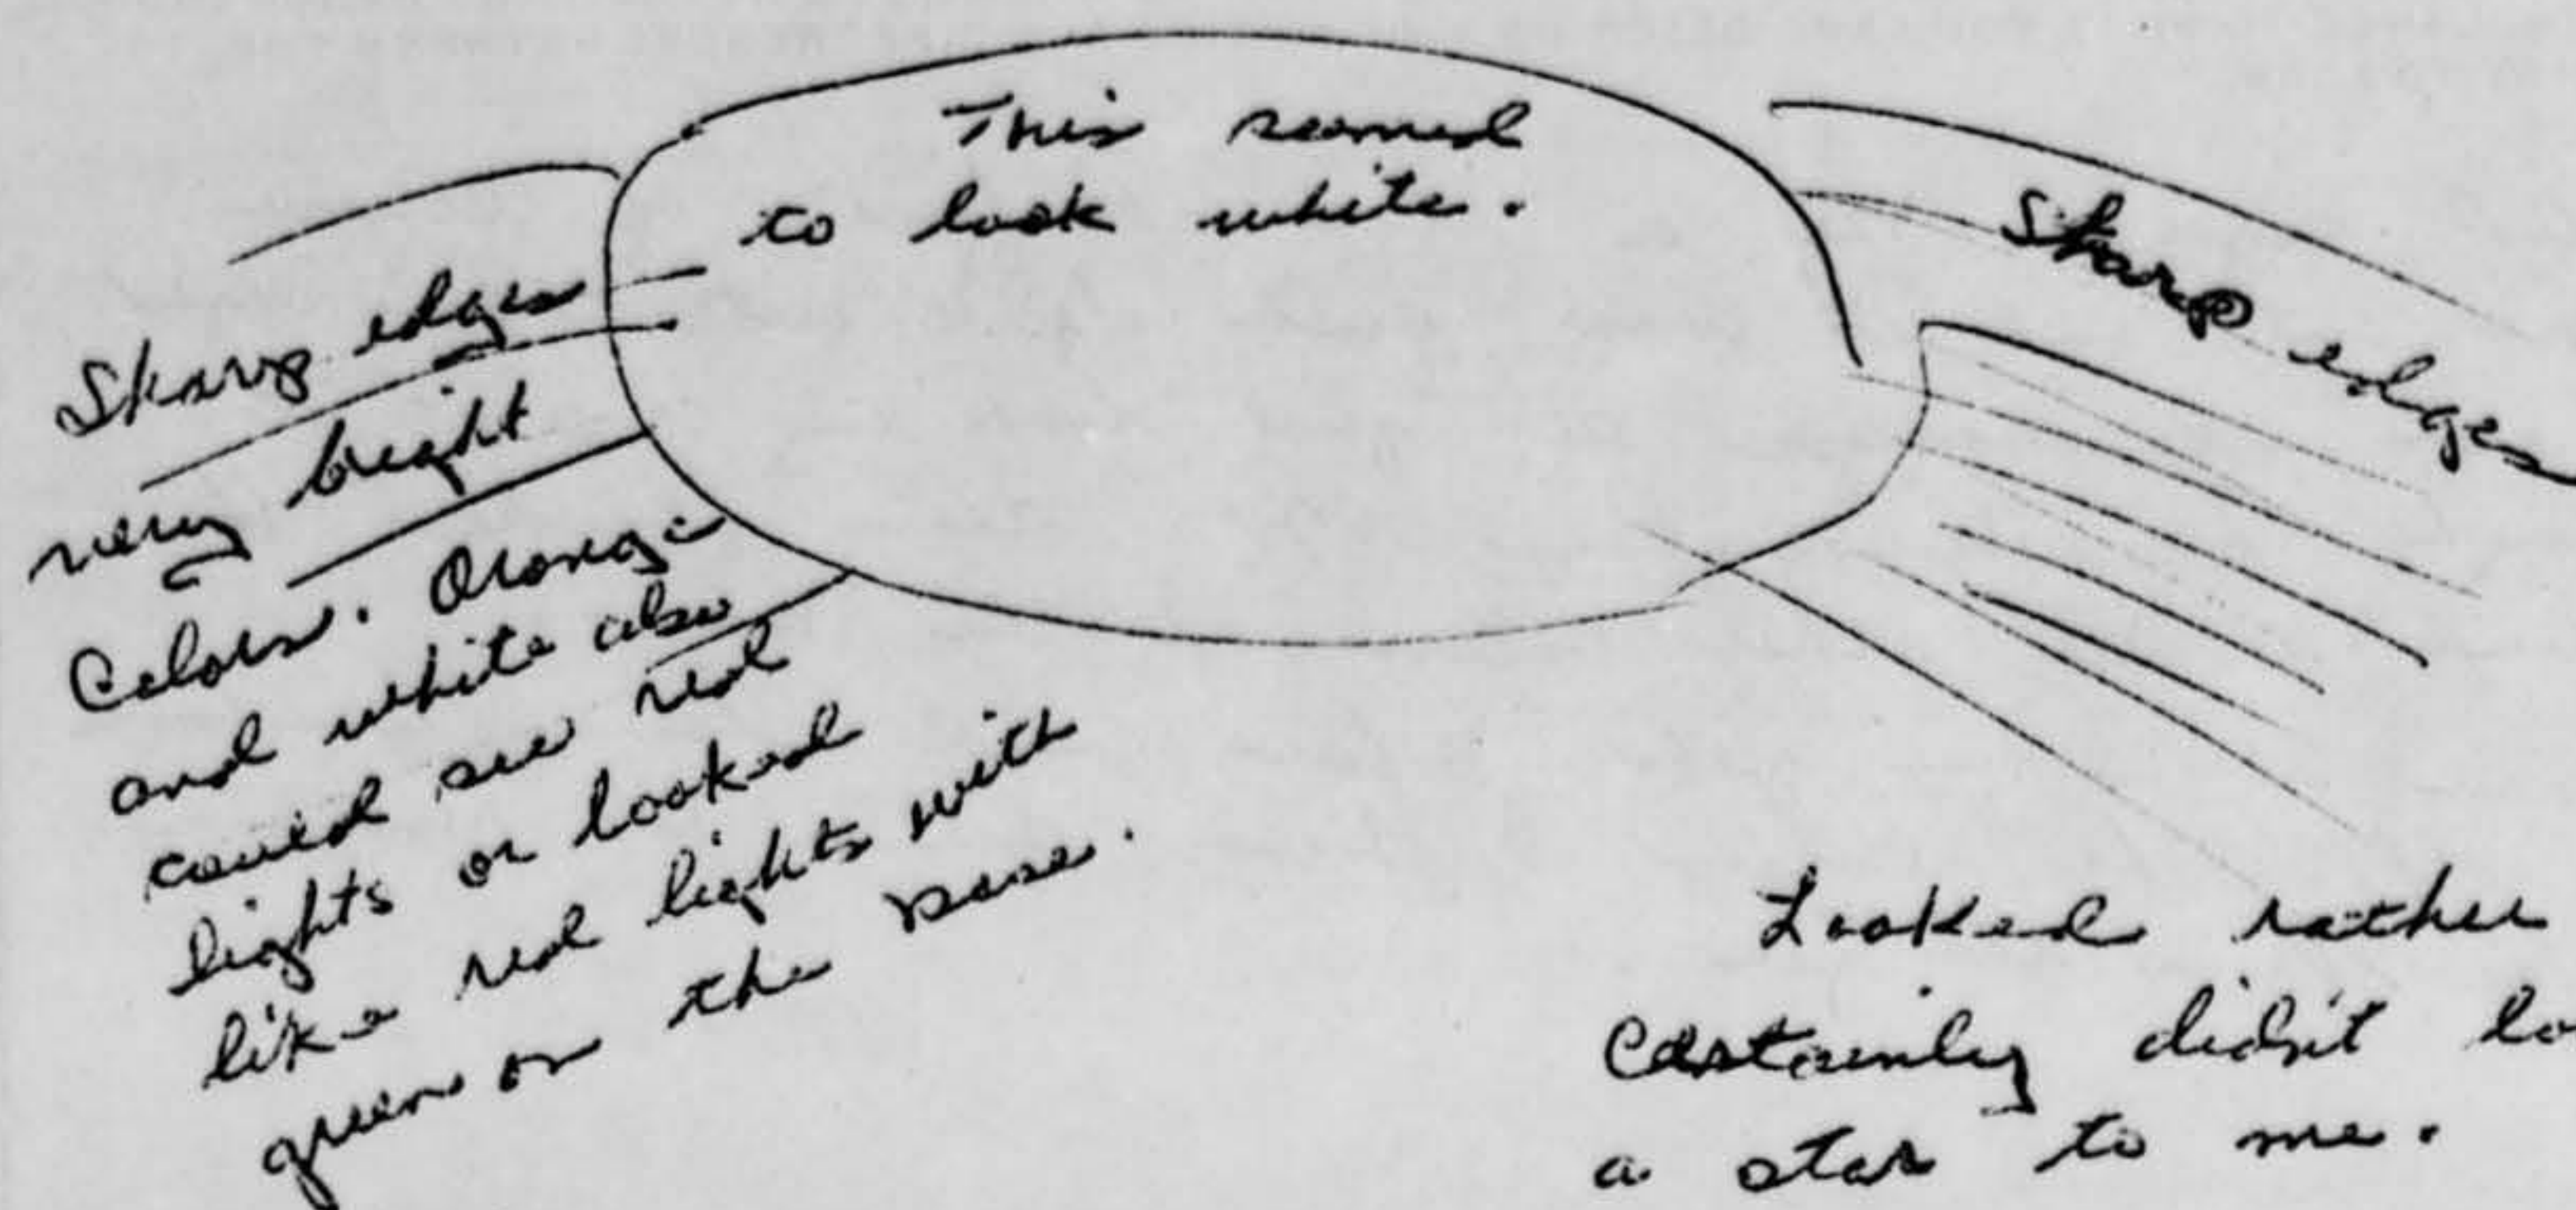 This seemed
to look white.
Sharp edges
very bright
Colors. Orange
and white also
could see red
lights or looked
like red lights with
green on the
Sharp edges
Looked rather
Certainly didn't lo
a star to me.